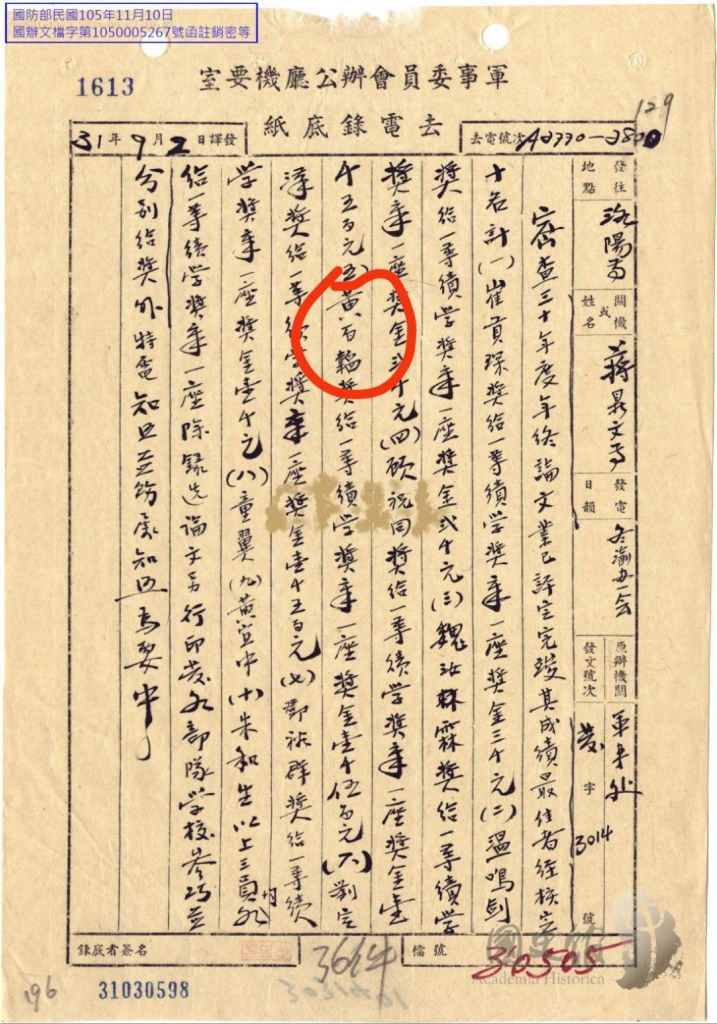 國防部民國105年11月10日
國辦文檔字第1050005267號函註銷密等
1613
軍事委員會辦公廳機要室
129
去電錄底紙
去電號次 A2770—2800
31年9月2日譯發
發往地點 洛陽
機關或姓名 蔣鼎文
發電日韻
原辦機關
發文號次 字 3014 號
密查三十年度年終論文業已評定完竣其成績最佳者經核定
十名計(一)崔貢琛獎給一等績學獎章一座獎金三千元(二)溫鳴劍
獎給一等績學獎章一座獎金貳千元(三)魏汝霖獎給一等績學
獎章一座獎金貳千元(四)顧祝同獎給一等績學獎章一座獎金壹
千五百元(五)黃百韜獎給一等績學獎章一座獎金壹千伍百元(六)劉定
漢獎給一等績學獎章一座獎金壹千五百元(七)鄧祿群獎給一等績
學獎章一座獎金壹千元(八)童翼(九)黃宣中(十)朱和生以上三員各
給一等績學獎章一座除錄送論文另行印發各部隊學校參考並
分別給獎外特電知照並飭屬知照為要中
錄底者簽名
檔號
3614
30505
國史館
Academia Historica
196
31030598